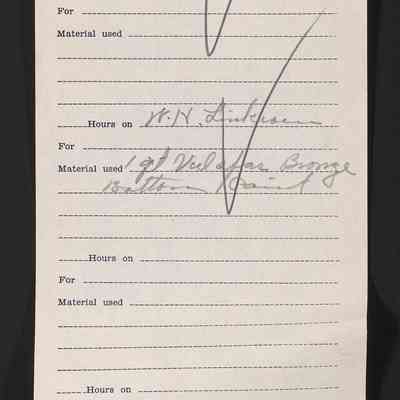 For
Material used
Hours on W. H.
For
Material used 1 qt Bronze
Bottom Paint
Hours on
For
Material used
Hours on